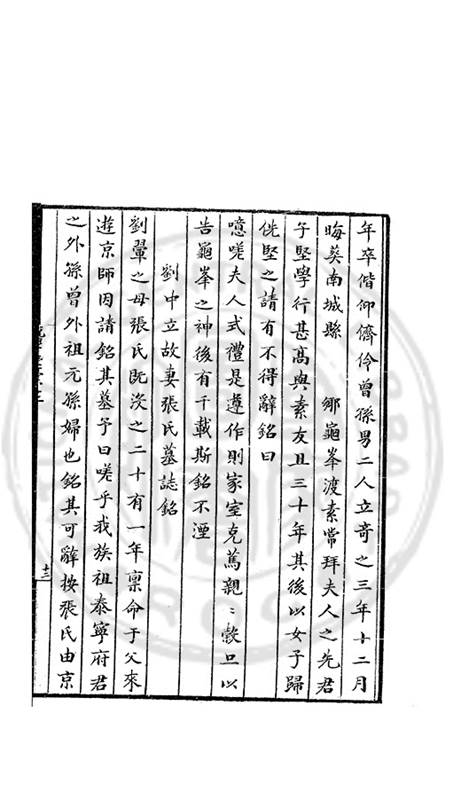 年卒偕仰儕伶曾孫男二人立竒之三年十二月
晦葵南城縣　　鄉龜峯渡素常拜夫人之先君
子堅學行甚高與素友且三十年其後以女子歸
侊堅之請有不得辭銘曰
噫嗟夫人式禮是遵作則家室克篤親〻穀旦以
吿龜峯之神後有千載斯銘不湮
劉中立故妻張氏墓誌銘
劉翬之母張氏旣歿之二十有一年稟命于父來
遊京師因請銘其墓予曰嗟乎我族祖泰寧府君
之外孫曾外祖元孫婦也銘其可辭按張氏由京
十三